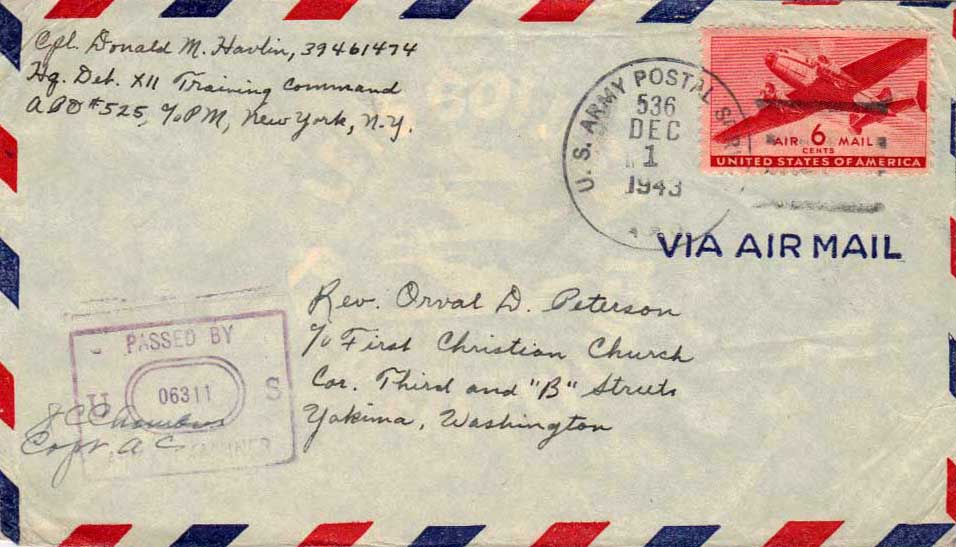 Cpl. Donald M. Havlin, 39461474
Hq. Det. XII Training Command
APO #525, c/o PM, New York, N.Y.
U. S. ARMY POSTAL
536
DEC
1
1943
AIR 6 MAIL
CENTS
UNITED STATES OF AMERICA
VIA AIR MAIL
Rev. Orval D. Peterson
c/o First Christian Church
Cor. Third and "B" Streets
Yakima, Washington
PASSED BY
U 06311 S
ARMY EXAMINER
Capt. A C